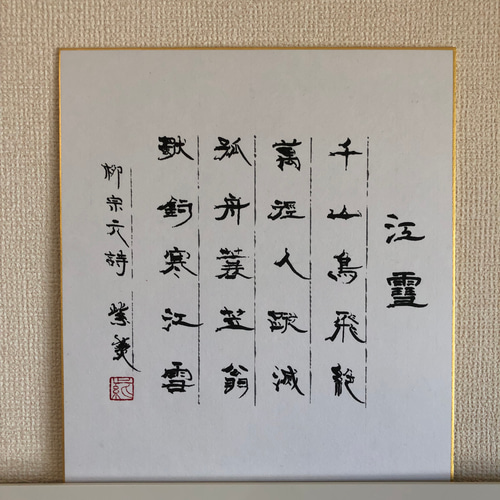 江雪
千山鳥飛絶
萬徑人蹤滅
孤舟蓑笠翁
獨釣寒江雪
柳宗元詩 紫